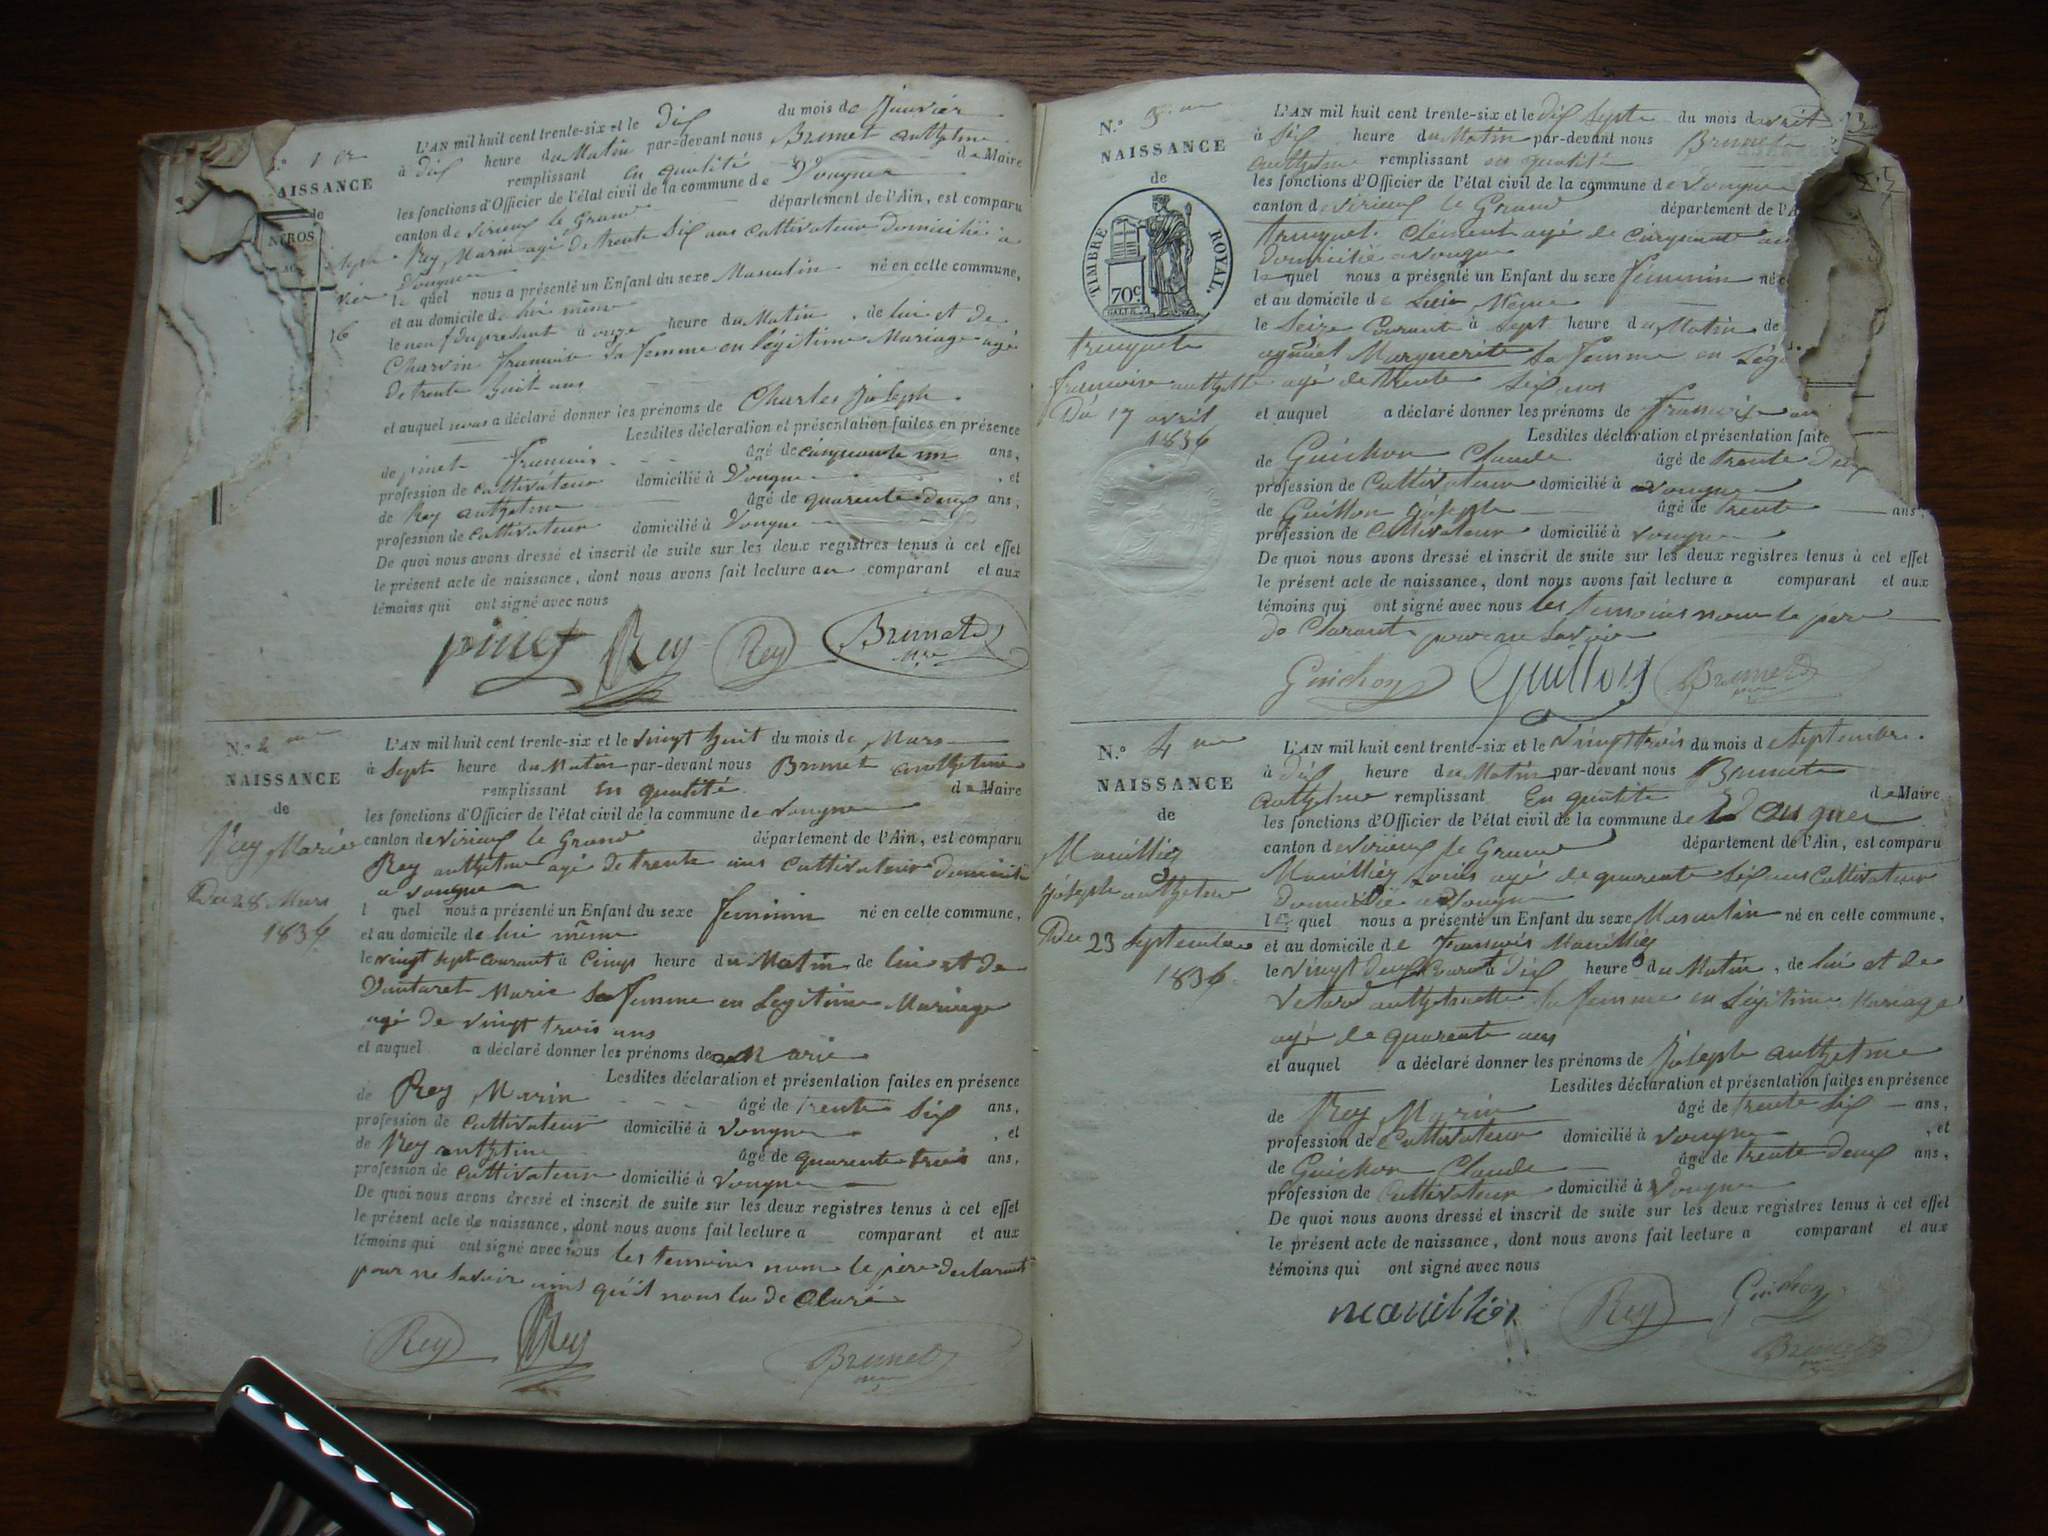 L'AN mil huit cent trente-six et le Dix du mois de Janvier
à Dix heure du Matin par-devant nous Brunet anthelme
remplissant en qualité de Maire
N.° 1 er
AISSANCE
de
NÉROS
les fonctions d'Officier de l'état civil de la commune de Vongnes
canton de Virieux le Grand département de l'Ain, est comparu
Rey Marin agé de trente six ans cultivateur Domicilié a
Vongne
le quel nous a présenté un Enfant du sexe Masculin né en cette commune,
et au domicile de lui même
le neuf du présent à onze heure du Matin, de lui et de
Charvin françoise sa femme en légitime Mariage agé
de trente huit ans
et auquel nous a déclaré donner les prénoms de Charles Joseph
Lesdites déclaration et présentation faites en présence
de pinet francois âgé de cinquante un ans,
profession de cultivateur domicilié à Vongne, et
de Rey anthelme âgé de quarente deux ans,
profession de cultivateur domicilié à Vongne
De quoi nous avons dressé et inscrit de suite sur les deux registres tenus à cet effet
le présent acte de naissance, dont nous avons fait lecture au comparant et aux
témoins qui ont signé avec nous
pinet Rey Rey Brunet
mre
N.° 2 me
NAISSANCE
de
Rey Marie
Du 28 Mars
1836
L'AN mil huit cent trente-six et le vingt huit du mois de Mars
à Sept heure du Matin par-devant nous Brunet anthelme
remplissant En qualité de Maire
les fonctions d'Officier de l'état civil de la commune de Vongne
canton de Virieux le Grand département de l'Ain, est comparu
Rey anthelme agé de trente ans cultivateur domicilié
a Vongne
l quel nous a présenté un Enfant du sexe feminin né en cette commune,
et au domicile de lui même
le vingt sept courant à Cinq heure du Matin de lui et de
Vantaret Marie Sa femme en Légitime Mariage
agé de vingt trois ans
et auquel a déclaré donner les prénoms de Marie
Lesdites déclaration et présentation faites en présence
de Rey Marin âgé de trente six ans,
profession de cultivateur domicilié à Vongne, et
de Rey anthelme âgé de quarente trois ans,
profession de cultivateur domicilié à Vongne
De quoi nous avons dressé et inscrit de suite sur les deux registres tenus à cet effet
le présent acte de naissance, dont nous avons fait lecture a comparant et aux
témoins qui ont signé avec nous les temoins non le père declarant
pour ne savoir ainsi qu'il nous la declaré
Rey Rey Brunet
N.° 3 me
NAISSANCE
de
TIMBRE ROYAL.
70 c
françoise anthelmette
Du 17 avril
1836
L'AN mil huit cent trente-six et le dix sept du mois d avril
à Six heure du Matin par-devant nous Brunet
anthelme remplissant en qualité
les fonctions d'Officier de l'état civil de la commune de Vongne
canton de Virieux le Grand département de l'A
truquet Clément agé de Cinquante an
domicilié a vongne
le quel nous a présenté un Enfant du sexe féminin né e
et au domicile de Lui Meme
le Seize Courant à Sept heure du Matin de
Marguerite Sa femme en Légi
agé de trente Six ans
et auquel a déclaré donner les prénoms de françoise an
Lesdites déclaration et présentation faite
de Guichon Claude âgé de trente deux
profession de Cultivateur domicilié à vongne
de Guillon Joseph âgé de trente ans,
profession de Cultivateur domicilié à vongne
De quoi nous avons dressé et inscrit de suite sur les deux registres tenus à cet effet
le présent acte de naissance, dont nous avons fait lecture a comparant et aux
témoins qui ont signé avec nous les temoins non le pere
de Clarant pour ne Savoir
Guichon Guillon Brunet
N.° 4 me
NAISSANCE
de
Mauillier
joseph anthelme
Du 23 Septembre
1836
L'AN mil huit cent trente-six et le vingt trois du mois d e Septembre
à dix heure du Matin par-devant nous Brunet
anthelme remplissant En qualité de Maire
les fonctions d'Officier de l'état civil de la commune de Vongnes
canton de Virieux le Grand département de l'Ain, est comparu
Mauillier Louis agé de quarente Six ans Cultivateur
Domicilié a Vongne
le quel nous a présenté un Enfant du sexe Masculin né en cette commune,
et au domicile de francois Mauillier
le vingt deux Courant à dix heure du Matin, de lui et de
anthelmette Sa femme en Légitime Mariage
agé de quarente ans
et auquel a déclaré donner les prénoms de Joseph anthelme
Lesdites déclaration et présentation faites en présence
de Rey Marin âgé de trente six ans,
profession de Cultivateur domicilié à Vongne, et
de Guichon Claude âgé de trente deux ans,
profession de Cultivateur domicilié à Vongne
De quoi nous avons dressé et inscrit de suite sur les deux registres tenus à cet effet
le présent acte de naissance, dont nous avons fait lecture a comparant et aux
témoins qui ont signé avec nous
mauillier Rey Guichon
Brunet